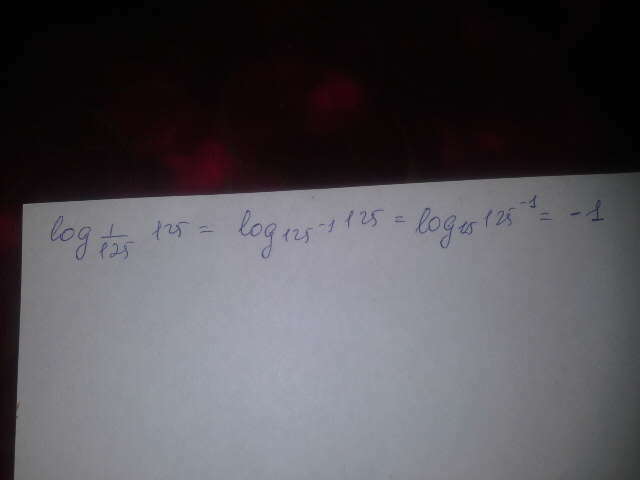 log 1/125 125 = log 125⁻¹ 125 = log 125 125⁻¹ = -1